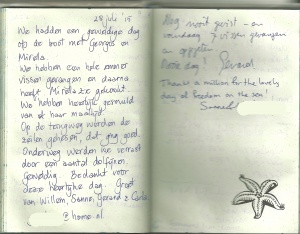 28 juli '15
We hadden een geweldige dag
op de boot met Georges en
Mirela.
We hebben een hele emmer
vissen gevangen en daarna
heeft Mirela ze gekookt.
We hebben heerlijk gesmuld
van al haar maaltijd.
Op de terugweg werden de
zeilen gehesen, dat ging goed.
Onderweg werden we verrast
door een aantal dolfijnen.
Geweldig. Bedankt voor
deze heerlijke dag. Groet
van Willem, Sanne, Gerard &
@home.nl
Nog nooit gevist - en
vandaag 7 vissen gevangen
en
Mooie dag! Gerard
Thanks a million for the lovely
day of freedom on the sea!